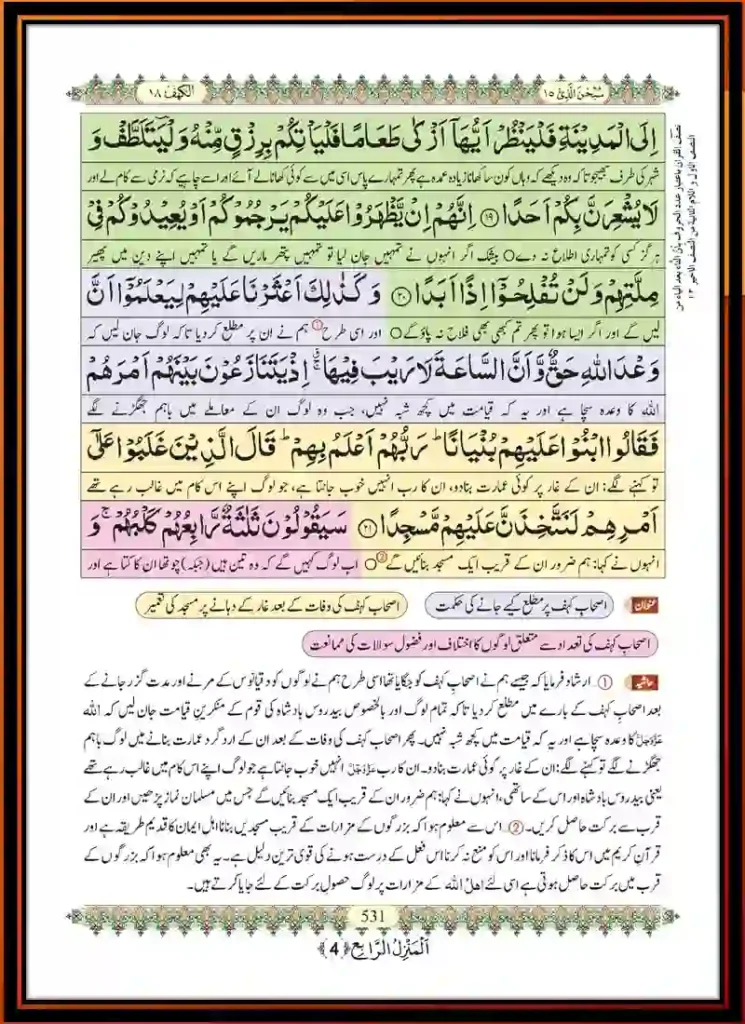 سُبْحٰنَ الَّذِیْ ١٥
الکهف ١٨
اِلَى الْمَدِیْنَةِ فَلْیَنْظُرْ اَیُّهَاۤ اَزْكٰى طَعَامًا فَلْیَاْتِكُمْ بِرِزْقٍ مِّنْهُ وَ لْیَتَلَطَّفْ وَ
شہر کی طرف بھیجو تاکہ وہ دیکھے کہ وہاں کون سا کھانا زیادہ عمدہ ہے پھر تمہارے پاس اسی میں سے کوئی کھانا لے آئے اور اسے چاہیے کہ نرمی سے کام لے اور
لَا یُشْعِرَنَّ بِكُمْ اَحَدًا ﴿۱۹﴾ اِنَّهُمْ اِنْ یَّظْهَرُوْا عَلَیْكُمْ یَرْجُمُوْكُمْ اَوْ یُعِیْدُوْكُمْ فِیْ
ہرگز کسی کو تمہاری اطلاع نہ دے ○ بیشک اگر انہوں نے تمہیں جان لیا تو تمہیں پتھر ماریں گے یا تمہیں اپنے دین میں پھیر
مِلَّتِهِمْ وَ لَنْ تُفْلِحُوْۤا اِذًا اَبَدًا ﴿۲۰﴾ وَ كَذٰلِكَ اَعْثَرْنَا عَلَیْهِمْ لِیَعْلَمُوْۤا اَنَّ
لیں گے اور اگر ایسا ہوا تو پھر تم کبھی بھی فلاح نہ پاؤگے ○ اور اسی طرح ① ہم نے ان پر مطلع کردیا تاکہ لوگ جان لیں کہ
وَعْدَ اللّٰهِ حَقٌّ وَّ اَنَّ السَّاعَةَ لَا رَیْبَ فِیْهَا ۚ اِذْ یَتَنَازَعُوْنَ بَیْنَهُمْ اَمْرَهُمْ
اللہ کا وعدہ سچا ہے اور یہ کہ قیامت میں کچھ شبہ نہیں، جب وہ لوگ ان کے معاملے میں باہم جھگڑنے لگے
فَقَالُوا ابْنُوْا عَلَیْهِمْ بُنْیَانًا ؕ رَبُّهُمْ اَعْلَمُ بِهِمْ ؕ قَالَ الَّذِیْنَ غَلَبُوْا عَلٰۤى
تو کہنے لگے: ان کے غار پر کوئی عمارت بنادو، ان کا رب انہیں خوب جانتا ہے، جو لوگ اپنے اس کام میں غالب رہے تھے
اَمْرِهِمْ لَنَتَّخِذَنَّ عَلَیْهِمْ مَّسْجِدًا ﴿۲۱﴾ سَیَقُوْلُوْنَ ثَلٰثَةٌ رَّابِعُهُمْ كَلْبُهُمْ ۚ وَ
انہوں نے کہا: ہم ضرور ان کے قریب ایک مسجد بنائیں گے ② ○ اب لوگ کہیں گے کہ وہ تین ہیں (جبکہ) چوتھا ان کا کتا ہے اور
عنوان اصحاب کہف پر مطلع کیے جانے کی حکمت اصحاب کہف کی وفات کے بعد غار کے دہانے پر مسجد کی تعمیر
اصحاب کہف کی تعداد سے متعلق لوگوں کا اختلاف اور فضول سوالات کی ممانعت
حاشیہ ① ارشاد فرمایا کہ جیسے ہم نے اصحاب کہف کو جگایا تھا اسی طرح ہم نے لوگوں کو دقیانوس کے مرنے اور مدت گزر جانے کے
بعد اصحاب کہف کے بارے میں مطلع کردیا تاکہ تمام لوگ اور بالخصوص بیدروس بادشاہ کی قوم کے منکرین قیامت جان لیں کہ اللہ
عَزَّوَجَلَّ کا وعدہ سچا ہے اور یہ کہ قیامت میں کچھ شبہ نہیں۔ پھر اصحاب کہف کی وفات کے بعد ان کے ارد گرد عمارت بنانے میں لوگ باہم
جھگڑنے لگے تو کہنے لگے: ان کے غار پر کوئی عمارت بنادو۔ ان کا رب عَزَّوَجَلَّ انہیں خوب جانتا ہے جو لوگ اپنے اس کام میں غالب رہے تھے
یعنی بیدروس بادشاہ اور اس کے ساتھی، انہوں نے کہا: ہم ضرور ان کے قریب ایک مسجد بنائیں گے جس میں مسلمان نماز پڑھیں اور ان کے
قرب سے برکت حاصل کریں۔ ② اس سے معلوم ہوا کہ بزرگوں کے مزارات کے قریب مسجدیں بنانا اہل ایمان کا قدیم طریقہ ہے اور
قرآن کریم میں اس کا ذکر فرمانا اور اس کو منع نہ کرنا اس فعل کے درست ہونے کی قوی ترین دلیل ہے۔ یہ بھی معلوم ہوا کہ بزرگوں کے
قرب میں برکت حاصل ہوتی ہے اسی لئے اھلُ اللہ کے مزارات پر لوگ حصولِ برکت کے لئے جایا کرتے ہیں۔
531
اَلْمَنْزِلُ الرَّابِعُ ﴿4﴾